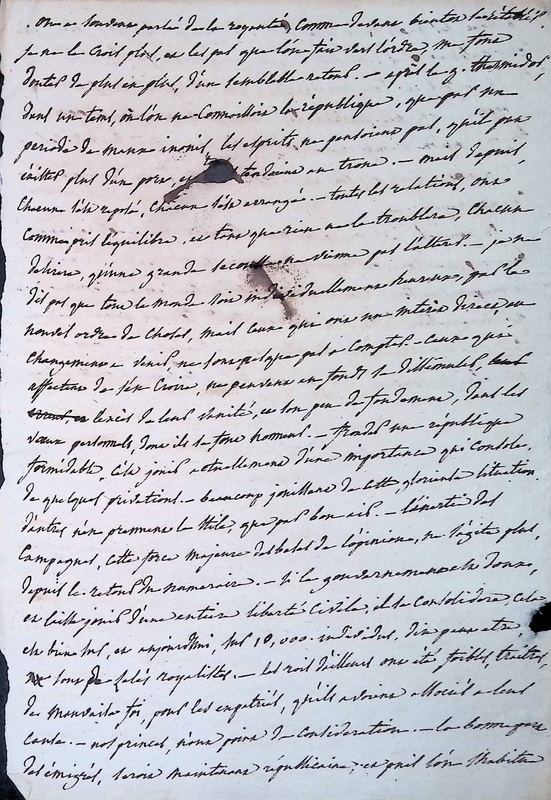 . on a souvent parlé de la royauté, comme devant bientot se rétablir.
je ne le crois plus, et les pas que l'on fait vers l'ordre, me font
douter de plus en plus, d'un semblable retour. — après le 9. thermidor,
dans un tems, où l'on ne connoissoit la république, que par une
periode de maux inouis, les esprits ne pensoient pas, qu'elle put
exister plus d'un jour, et tendaient au trone. — mais depuis,
chacun s'est reposé, chacun s'est arrangé. — toutes les relations, ont
comme pris l'equilibre, et tant que rien ne le troublera, chacun
desirera, qu'une grande secousse ne vienne pas l'alterer. — je ne
dis pas que tout le monde soit individuellement heureux, par le
nouvel ordre de choses, mais ceux qui ont un interet direct, au
changement a venir, ne sont presque pas a compter. — ceux qui
affectent de s'en croire, ne peuvent au fond se dissimuler,
l'excès de leur vanité, et le peu de fondement, dans les
vœux personnels, dont ils se font honneur. — fronder une république
formidable, c'est jouir actuellement d'une importance qui console
de quelques privations. — beaucoup jouissent de cette glorieuse situation.
d'autres n'en prennent le stile, que par bon air. — l'inertie des
campagnes, cette force majeure des debats de l'opinion, ne s'agite plus,
depuis le retour du numeraire. — si le gouvernement est doux,
et laisse jouir d'une entiere liberté civile, il se consolidera. cela
est bien sur, et aujourd'hui, sur 10,000 individus, dix peut etre,
sont de sales royalistes. — les rois d'ailleurs ont été, foibles, traitres,
de mauvaise foi, pour les expatriés, qu'ils avoient associés a leur
cause. — nos princes, n'ont point de consideration. — la bonne part
des émigrés, seroit maintenant républicaine; et puis l'on s'habitue